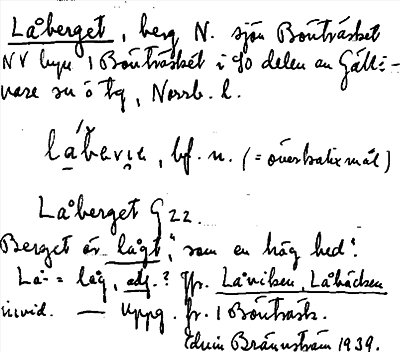 Låberget, berg N. sjön Bönträsket
NV byn i Bönträsket i sö delen av Gälli-
vare sn o tg, Norrb. l.
bf. n. (= överkalixmål)
Låberget G 22.
Berget är "lågt", som en hög hed".
Lå- = låg, adj.? Jfr. Låviken, Låbäcken
invid. — Uppg. fr. i Bönträsk.
Edvin Brännström 1939.